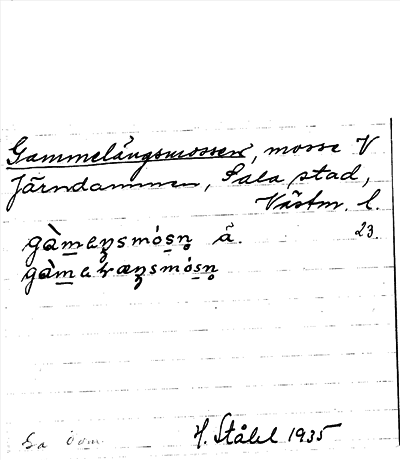 Gammelängsmossen, mosse V
Järndammen, Sala stad,
Västm. l.
gàmeŋsmósn̥ ä. 23.
gàmatræŋsmósn̥
H. Ståhl 1935